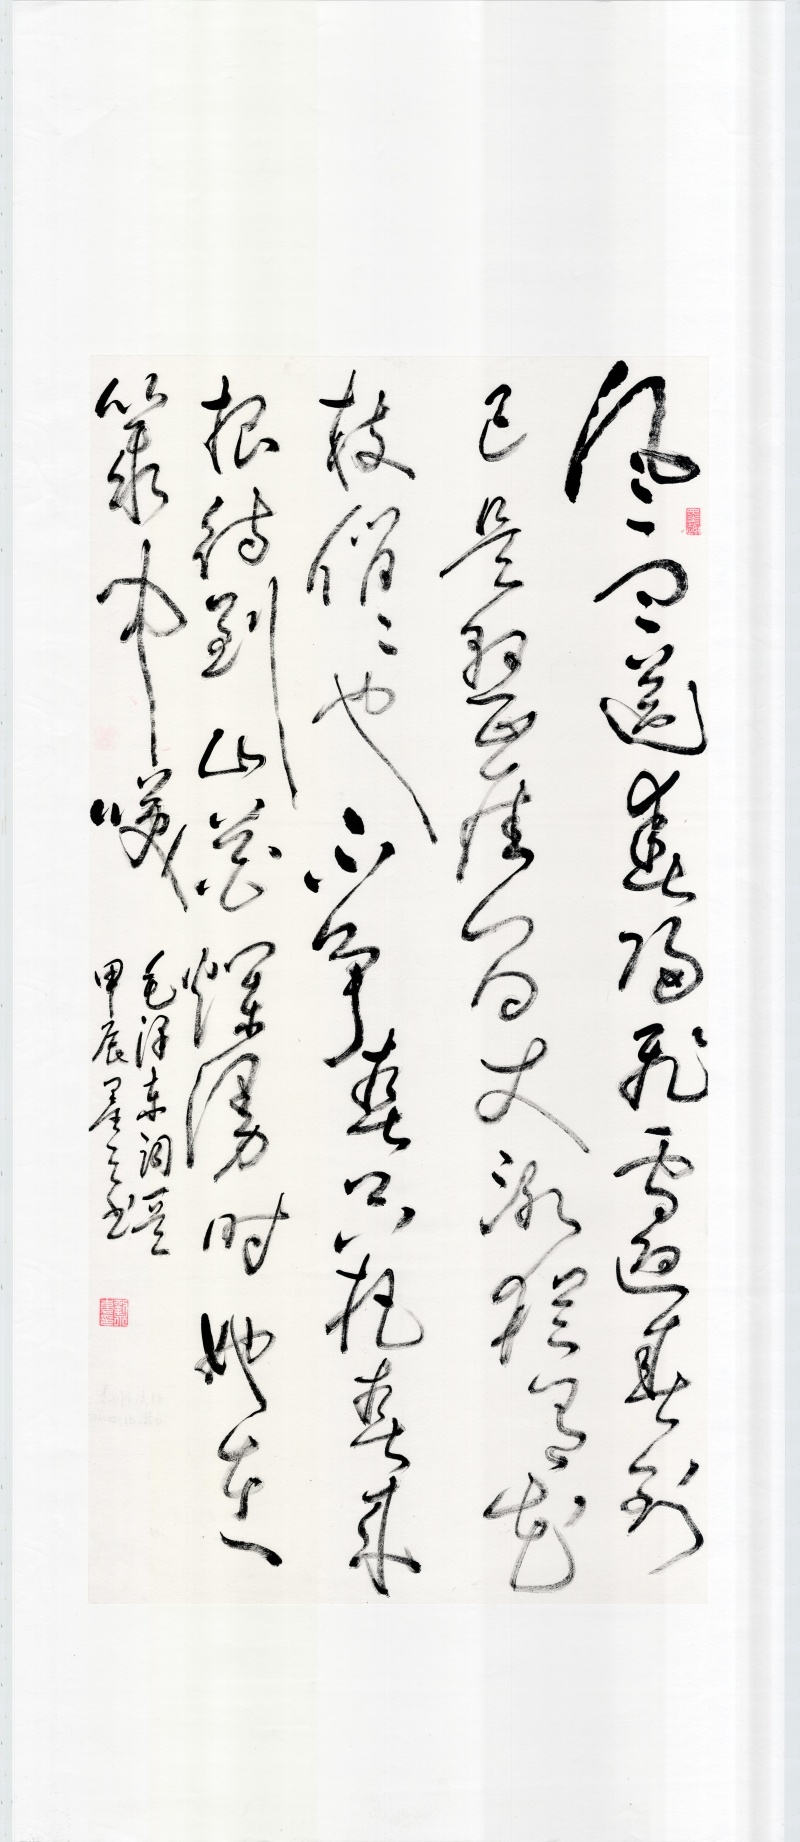 風雨送春歸飛雪迎春到
已是懸崖百丈冰猶有花
枝俏〻也不争春只把春来
报待到山花爛漫时她在
叢中咲
毛泽东词一首
甲辰 书